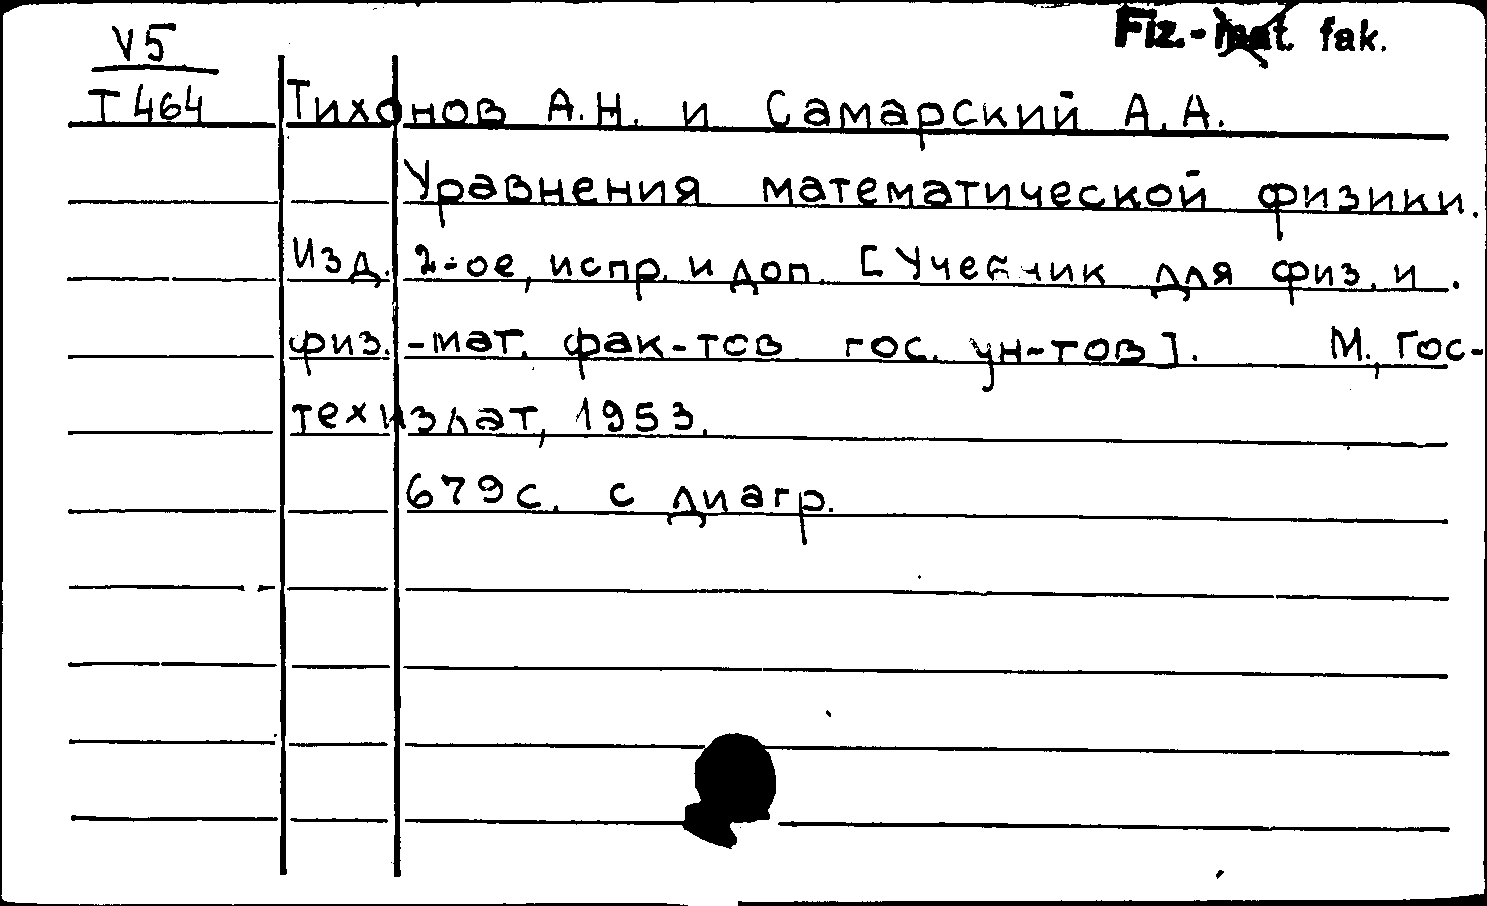 Fiz.-mat. fak.
V5
T 464
Тихонов А.Н. и Самарский А.А.
Уравнения математической физики.
Изд. 2-ое, испр. и доп. [Учебник для физ. и
физ.-мат. фак-тов гос. ун-тов]. М., Гос-
техиздат, 1953.
679 с. с диагр.